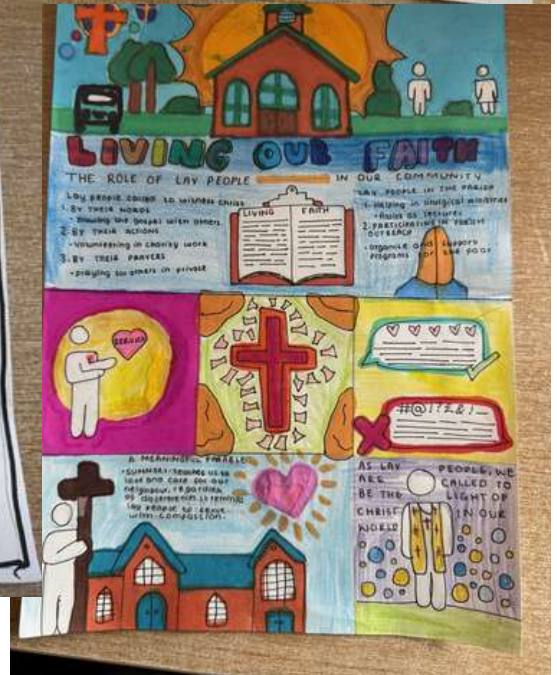 LIVING OUR FAITH
THE ROLE OF LAY PEOPLE IN OUR COMMUNITY
Lay people called to witness Christ
1. BY THEIR WORDS
• Sharing the gospel with others
2. BY THEIR ACTIONS
• Volunteering in charity work
3. BY THEIR PRAYERS
• praying for others in private
LIVING FAITH
LAY PEOPLE IN THE PARISH
1. Helping in liturgical ministries
• Assist as lectures
2. PARTICIPATING IN PARISH
OUTREACH
• Organise and support
programs for the poor
SERVICE
#@!?£&!
A MEANINGFUL PARABLE
• SUMMARY: teaches us to
love and care for our
neighbour, regardless
of differences. It reminds
lay people to serve
with compassion.
AS LAY PEOPLE, WE
ARE CALLED TO
BE THE LIGHT OF
CHRIST IN OUR
WORLD